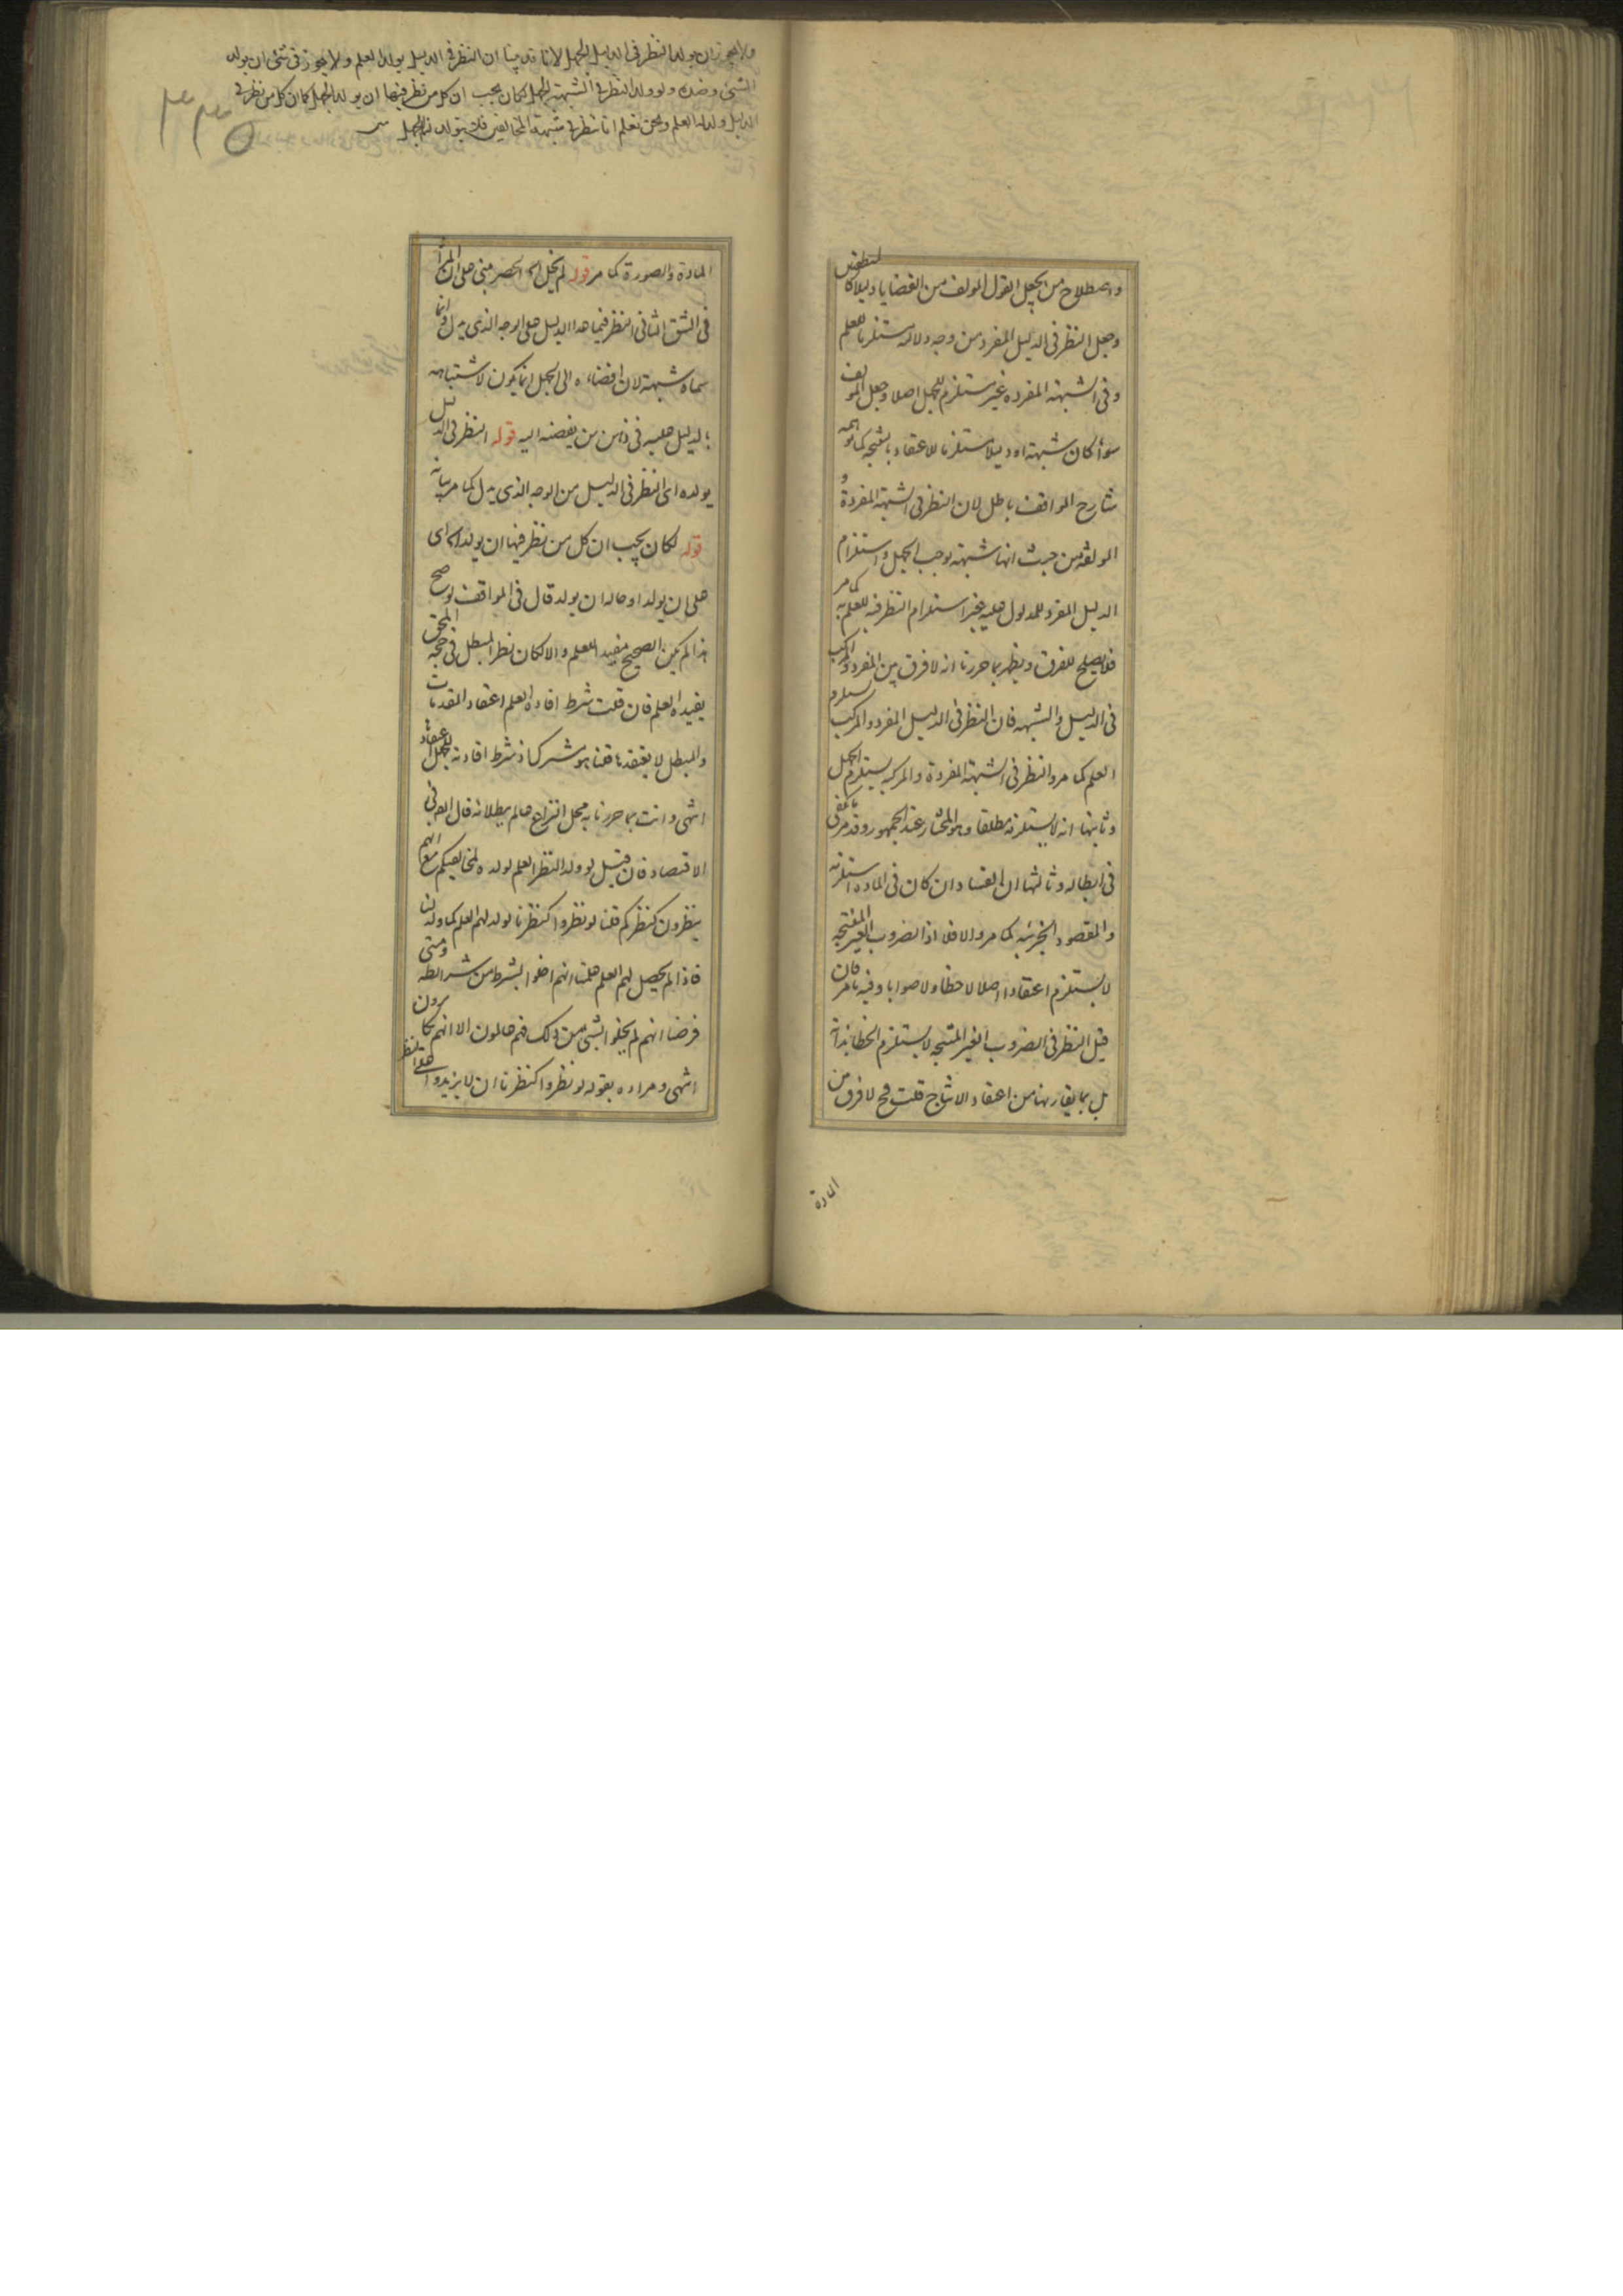 واصطلاح من يجعل القول المولف من القضايا دليلا كا
وجعل النظر فى الدليل المفرد من وجه دلالته مستلزما للعلم
وفى الشبهة المفرده غير مستلزم للجهل اصلا وجعل المولف
سوأ كان شبهة او دليلا مستلزما للاعتقاد بالنتيجه كما توهمه
شارح المواقف باطل لان النظر فى الشبهة المفردة و
المولفه من حيث انها شبهة يوجب الجهل واستلزام
الدليل المفرد للمدلول عليه غير استلزام النظر فيه للعلم به كما مر
فلا يصلح للفرق ويظهر بما حررنا انه لا فرق بين المفرد والمركب
فى الدليل والشبهه فان النظر فى الدليل المفرد والمركب يستلزم
العلم كما مر والنظر فى الشبهة المفردة والمركبه يستلزم الجهل
وثانيها انه لا يستلزمه مطلقا وهو المختار عند الجمهور وقد مر ما يكفى
فى ابطاله وثالثها ان الفساد ان كان فى الماده استلزمه
والمقصود الجزئيه كما مر والا فلا اذ الضروب الغير المنتجه
لا يستلزم اعتقادا اصلا لا خطأ ولا صوابا وفيه ما مر فان
قيل النظر فى الضروب الغير المنتجه لا يستلزم الخطا بذاته
بل بما يقارنها من اعتقاد الانتاج قلت فح لا فرق من
المادة
ولا يجوز ان يولد النظر فى الدليل الجهل لانا قد بينا ان النظر فى الدليل يولد العلم ولا يجوز فى شئ ان يولد
الشئ وضده ولو ولد النظر فى الشبهة الجهل لكان يجب ان كل من نظر فيها ان يولد الجهل كما ان كل من نظر فى
الدليل ولد له العلم ونحن نعلم انا ننظر فى شبهة المخالفين فلا يتولد لنا الجهل
٣٣٥
المادة والصورة كما مر قوله لم يخل اه الحصر مبنى على ان المراد
فى الشق الثانى النظر فيما عدا الدليل على الوجه الذى يدل وانما
سماه شبهة لان افضاءه الى الجهل انما يكون لاشتباهه
بالدليل عليه فى ذهن من يفضه اليه قوله النظر فى الدليل
يولده اى النظر فى الدليل من الوجه الذى يدل كما مر بيانه
قوله لكان يجب ان كل من نظر فيها ان يولد اه اى
على ان يولد او حاله ان يولد قال فى المواقف لو صح
هذا لم يكن الصحيح مفيدا للعلم والا لكان نظر المبطل فى حجة المحق
يفيده العلم فان قلت شرط افاده العلم اعتقاد المقدمات
والمبطل لا يعتقدها قلنا هو مشترك اذ شرط افادته للجهل اعتقاد
انتهى وانت بما حررنا به محل النزاع عالم ببطلانه قال المص فى
الاقتصاد فان قيل لو ولد النظر العلم لولده لمخالفيكم مع انهم
ينظرون كنظركم قلنا لو نظروا كنظرنا لولد لهم العلم كما ولد لنا
فاذا لم يحصل لهم العلم علمنا انهم اخلوا بشرط من شرائطه ومتى
فرضنا انهم لم يخلوا بشئ من ذلك فهم عالمون الا انهم يكابرون
انتهى ومراده بقوله لو نظروا كنظرنا ان لا يزيدوا على النظر